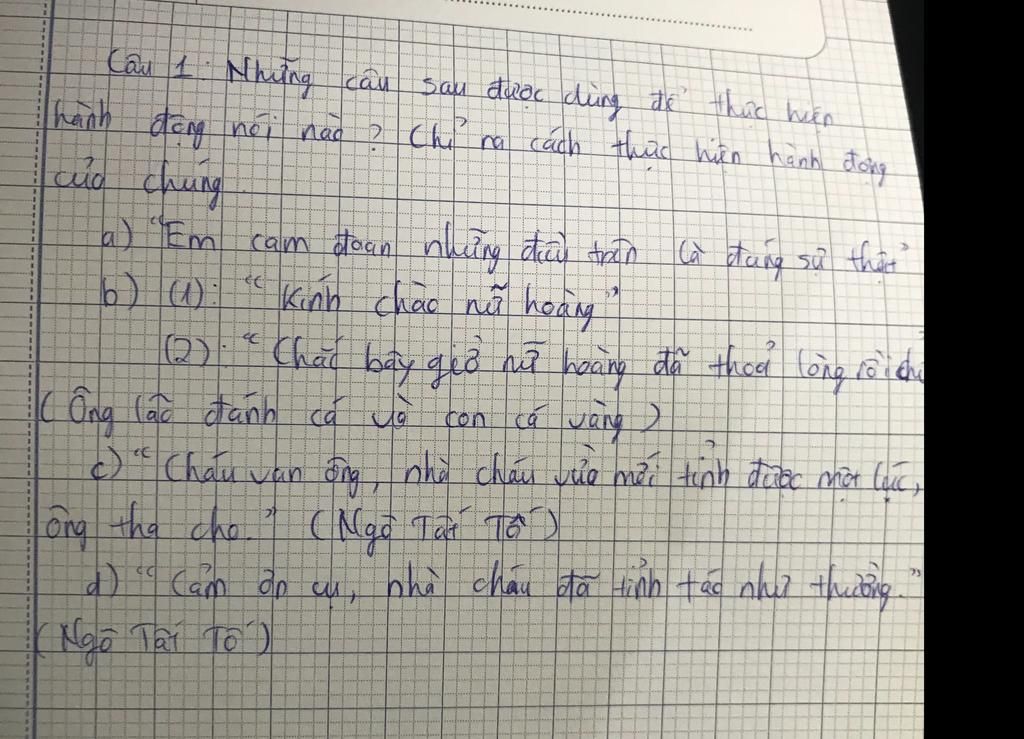 Câu 1: Những câu sau được dùng để thực hiện
hành động nói nào? Chỉ ra cách thực hiện hành động
của chúng
a) "Em cam đoan những điều trên là đúng sự thật"
b) (1): "Kính chào nữ hoàng"
(2): "Chắc bây giờ nữ hoàng đã thoả lòng rồi chứ
(Ông lão đánh cá và con cá vàng)
c) "Cháu van ông, nhà cháu vừa mới tỉnh được một lúc,
ông tha cho." (Ngô Tất Tố)
d) "Cảm ơn cụ, nhà cháu đã tỉnh táo như thường."
(Ngô Tất Tố)